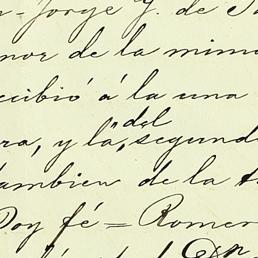 Jorge Y. de
nor de la misma
cibió á la una
ra, y la, "del segund
tambien de la t
Doy fé = Romer